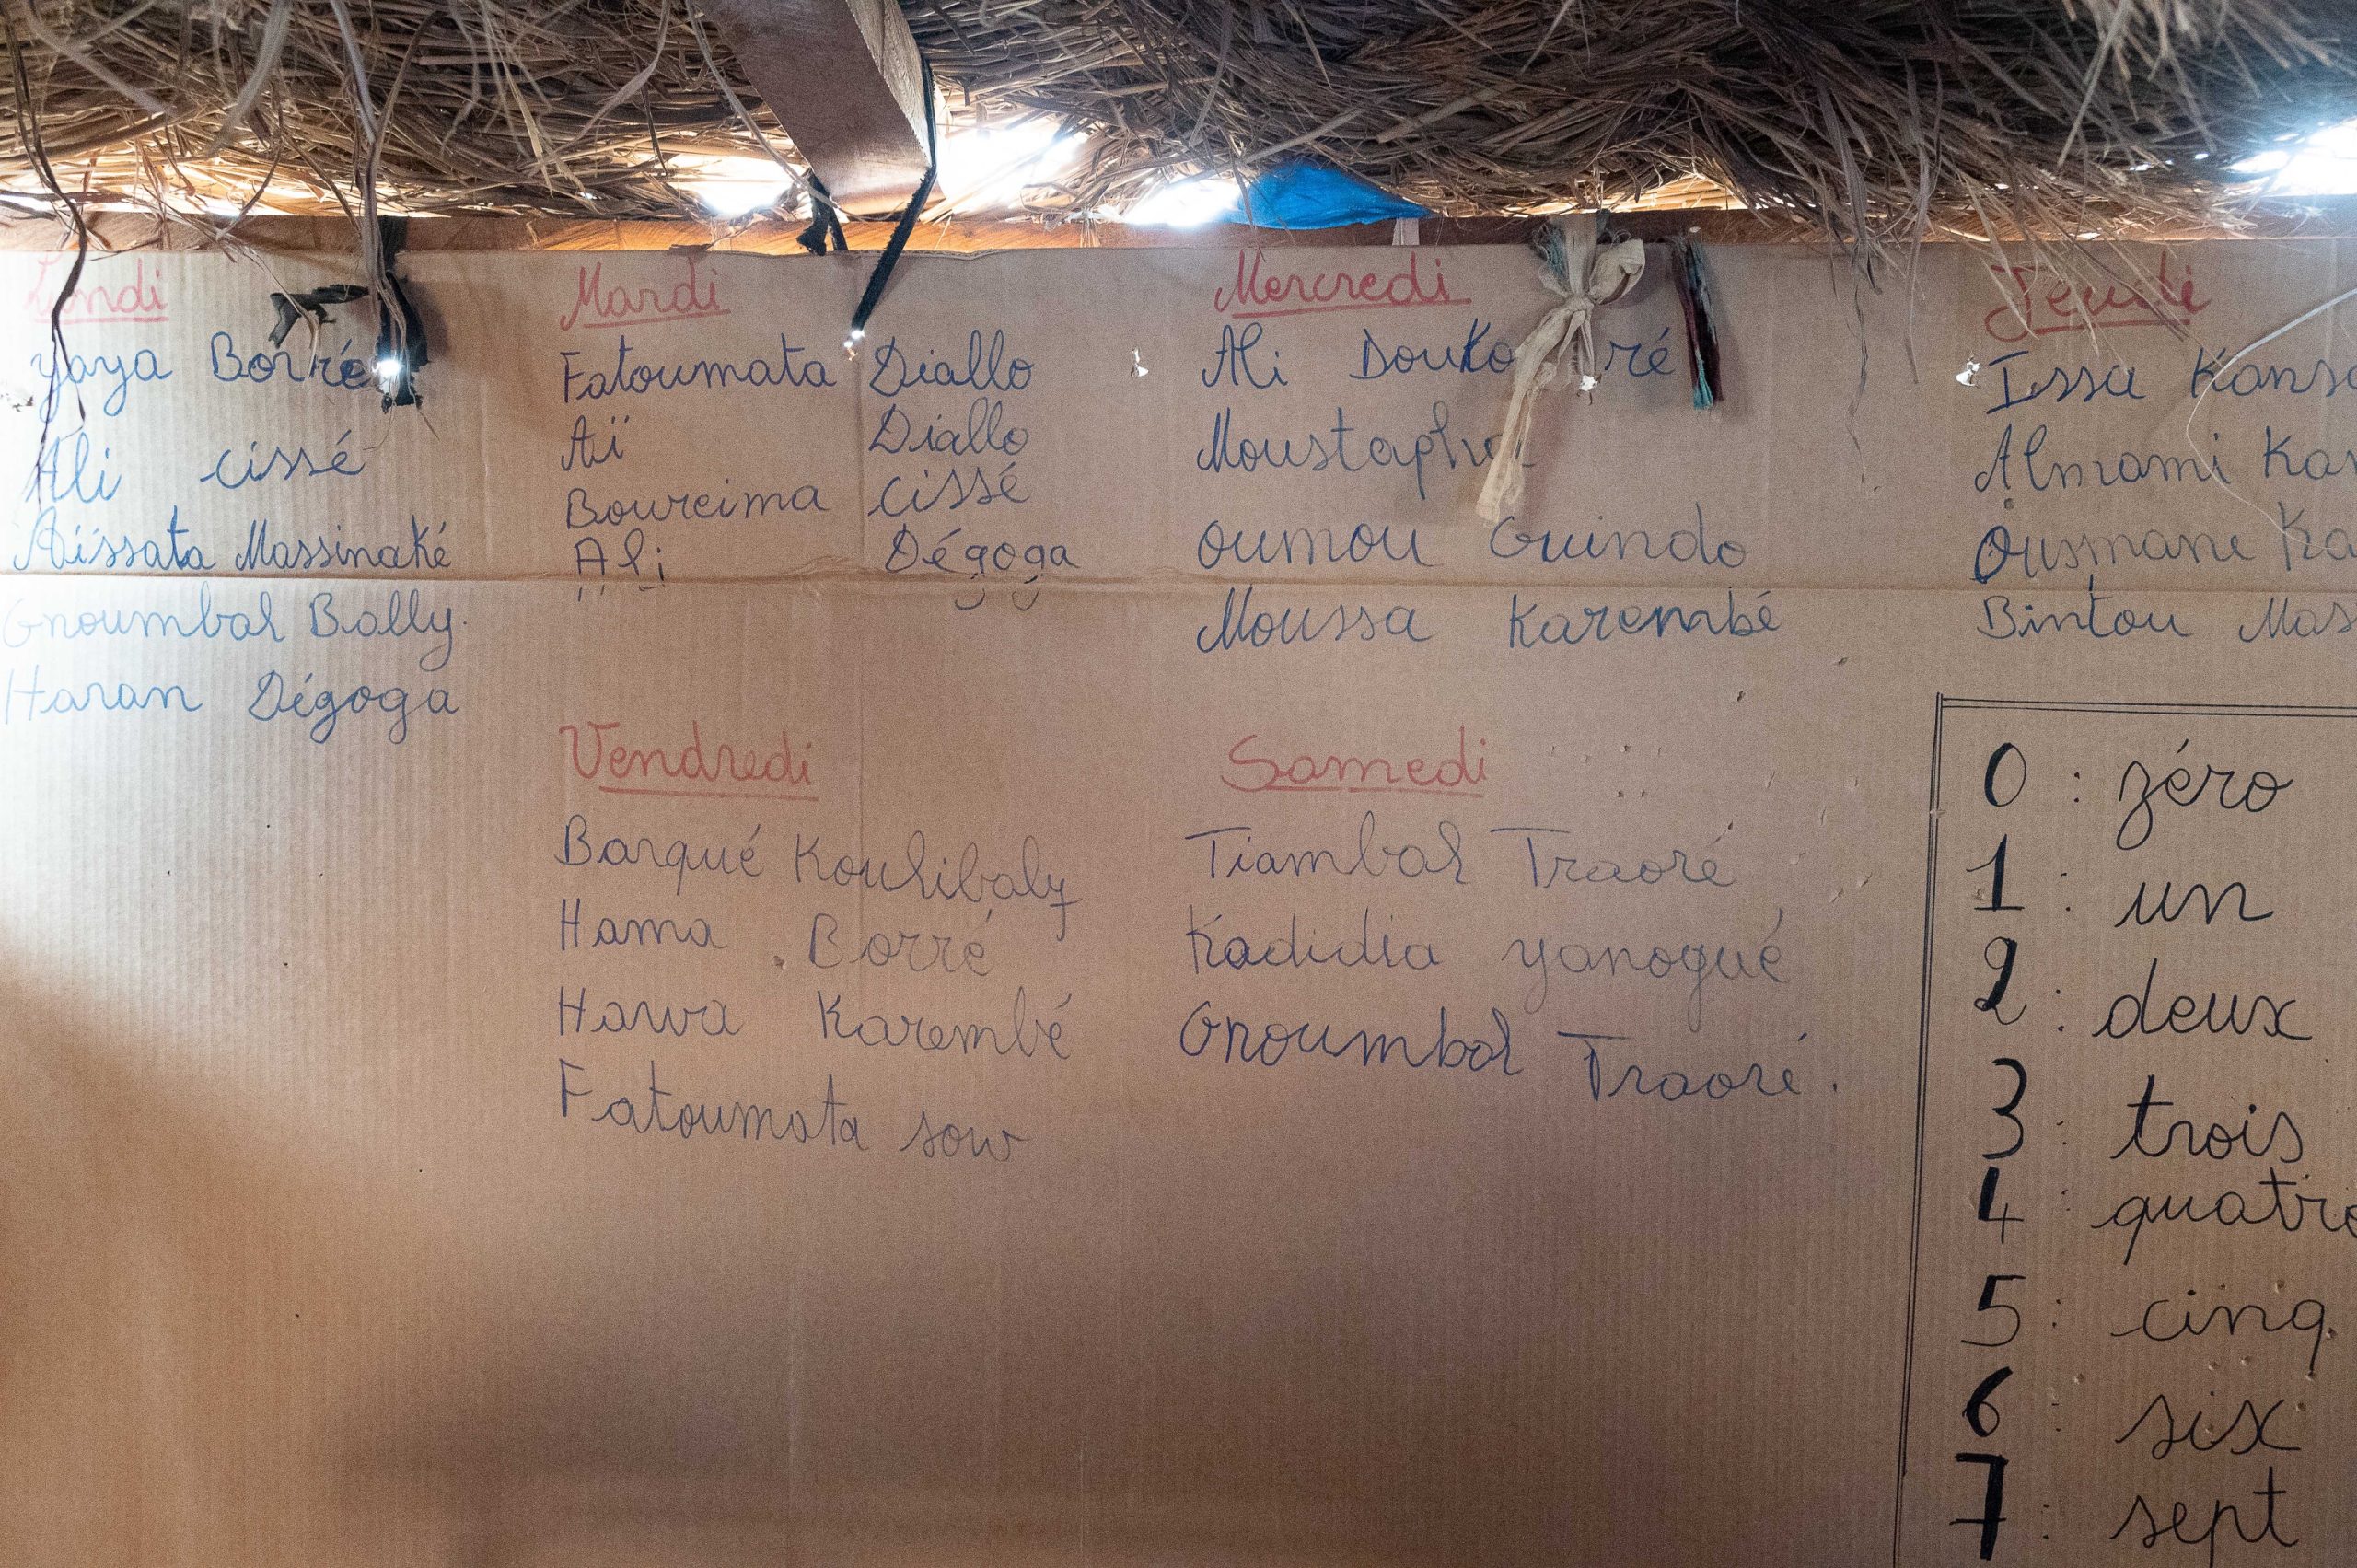 Lundi
Yaya Borré
Ali cissé
Aïssata Massinaké
Gnoumbal Bally
Haran Dégoga
Mardi
Fatoumata Diallo
Aï Diallo
Boureima cissé
Ali Dégoga
Mercredi
Ali
Moustapha
oumou Guindo
Moussa Karembé
Jeudi
Issa
Almami
Ousmane
Bintou
Vendredi
Barqué Kouhibaly
Hama Borré
Hawa Karembé
Fatoumata sow
Samedi
Tiambal Traoré
Kadidia yanogué
Gnoumbal Traoré.
0 : zéro
1 : un
2 : deux
3 : trois
4 : quatre
5 : cinq
6 : six
7 : sept